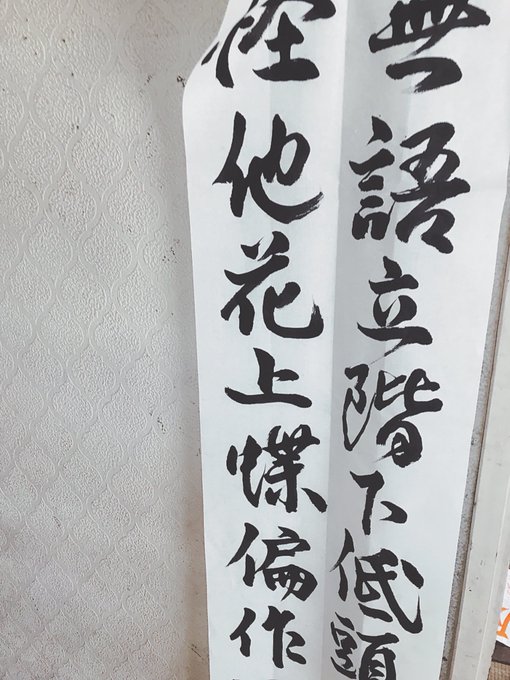 無語立階下低頭
怪他花上蝶偏作